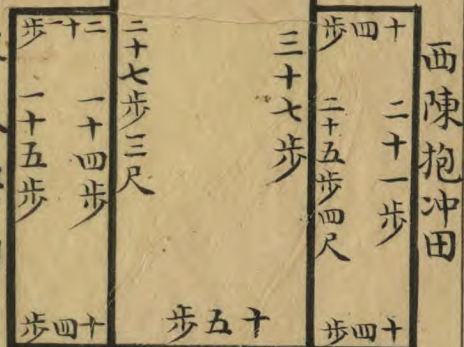 西陳抱冲田
十四步
二十一步
二十五步四尺
十四步
三十七步
二十七步三尺
十五步
二十一步
一十四步
一十五步
十四步